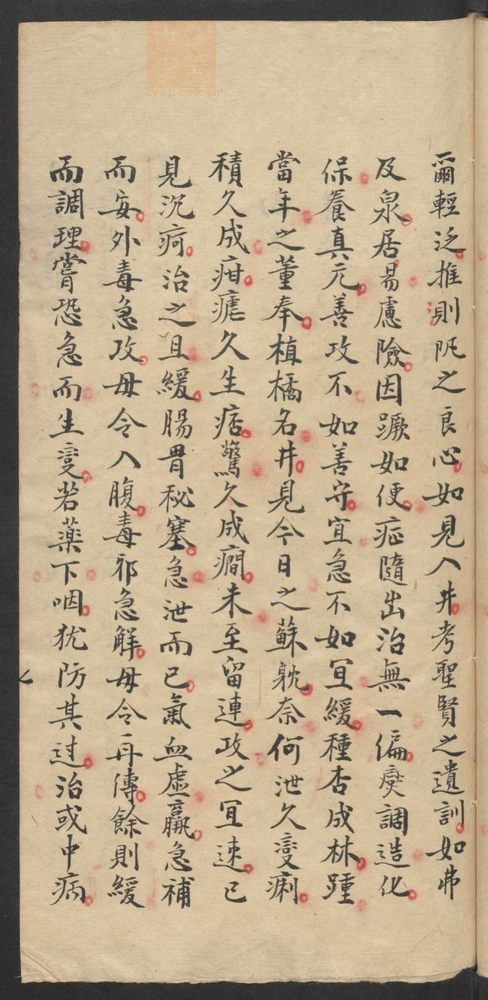 爾輕泛推則阢之良心如見入井考聖賢之遺訓如弗
及泉居易慮險因蹶如便症隨出治無一偏爕調造化
保養真元善攻不如善守宜急不如冝緩種杏成林踵
當年之董奉植橘名井見今日之蘇躭奈何泄久變痢
積久成疳瘧久生痞驚久成癇未至留連攻之冝速已
見沉疴治之且緩腸胃秘塞急泄而已氣血虛羸急補
而安外毒急攻毋令入腹毒邪急解毋令再傳餘則緩
而調理嘗恐急而生變若藥下咽犹防其过治或中病